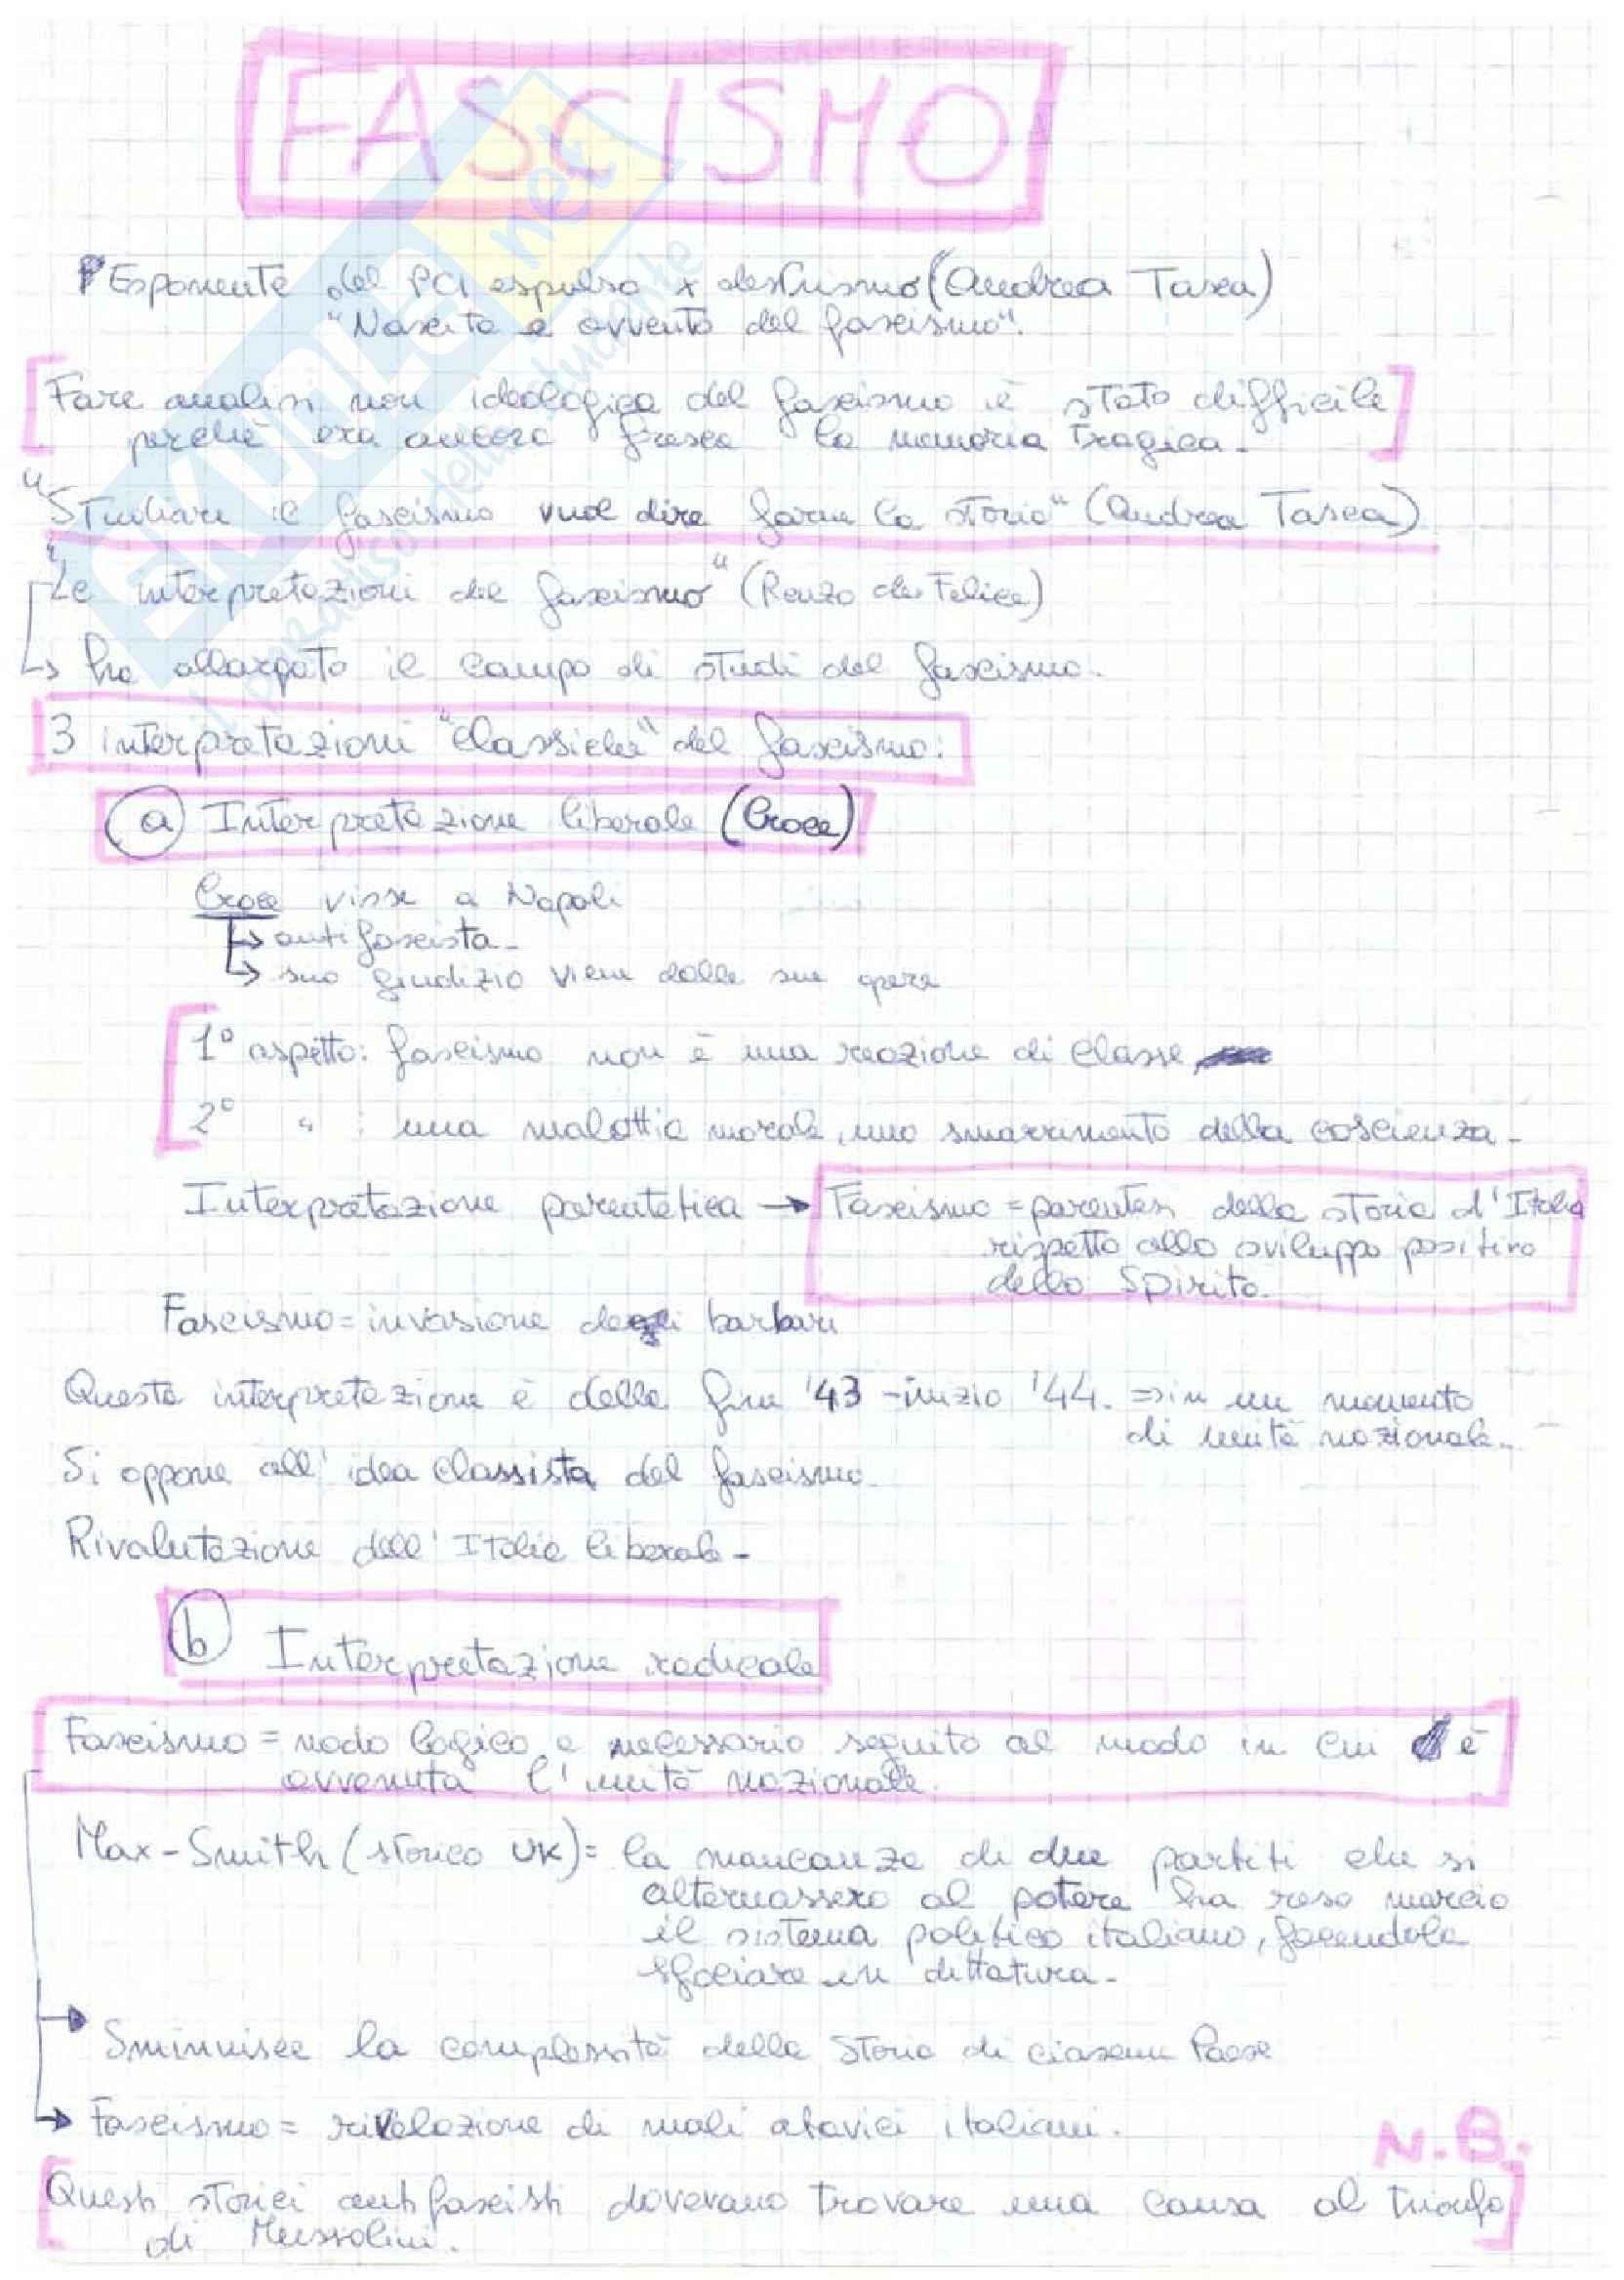 FASCISMO
Esponente del PCI espulso x destrismo (Andrea Tasca)
"Nascita e avvento del fascismo".
Fare analisi non ideologica del fascismo è stato difficile
perché era ancora fresca la memoria tragica.
"Studiare il fascismo vuol dire farne la storia" (Andrea Tasca)
"Le interpretazioni del fascismo" (Renzo de Felice)
↳ ha allargato il campo di studi del fascismo.
3 interpretazioni "classiche" del fascismo:
a) Interpretazione liberale (Croce)
Croce visse a Napoli
↳ antifascista.
↳ suo giudizio viene dalle sue opere
1° aspetto: fascismo non è una reazione di classe
2° " : una malattia morale, uno smarrimento della coscienza.
Interpretazione parentetica → Fascismo = parentesi della storia d'Italia
rispetto allo sviluppo positivo
dello Spirito.
Fascismo = invasione degli barbari
Questa interpretazione è della fine '43 - inizio '44. ⇒ in un momento
di unità nazionale.
Si oppone all'idea classista del fascismo.
Rivalutazione dell'Italia liberale.
b) Interpretazione radicale
Fascismo = nodo logico e necessario seguito al modo in cui è
avvenuta l'unità nazionale.
Max-Smith (storico UK) = la mancanza di due partiti che si
alternassero al potere ha reso marcio
il sistema politico italiano, facendola
sfociare in dittatura.
→ Sminuisce la complessità della storia di ciascun Paese
→ Fascismo = rivelazione di mali atavici italiani.
N.B.
Questi storici antifascisti dovevano trovare una causa al trionfo
di Mussolini.
SKUOLA.net
il paradiso dello studente